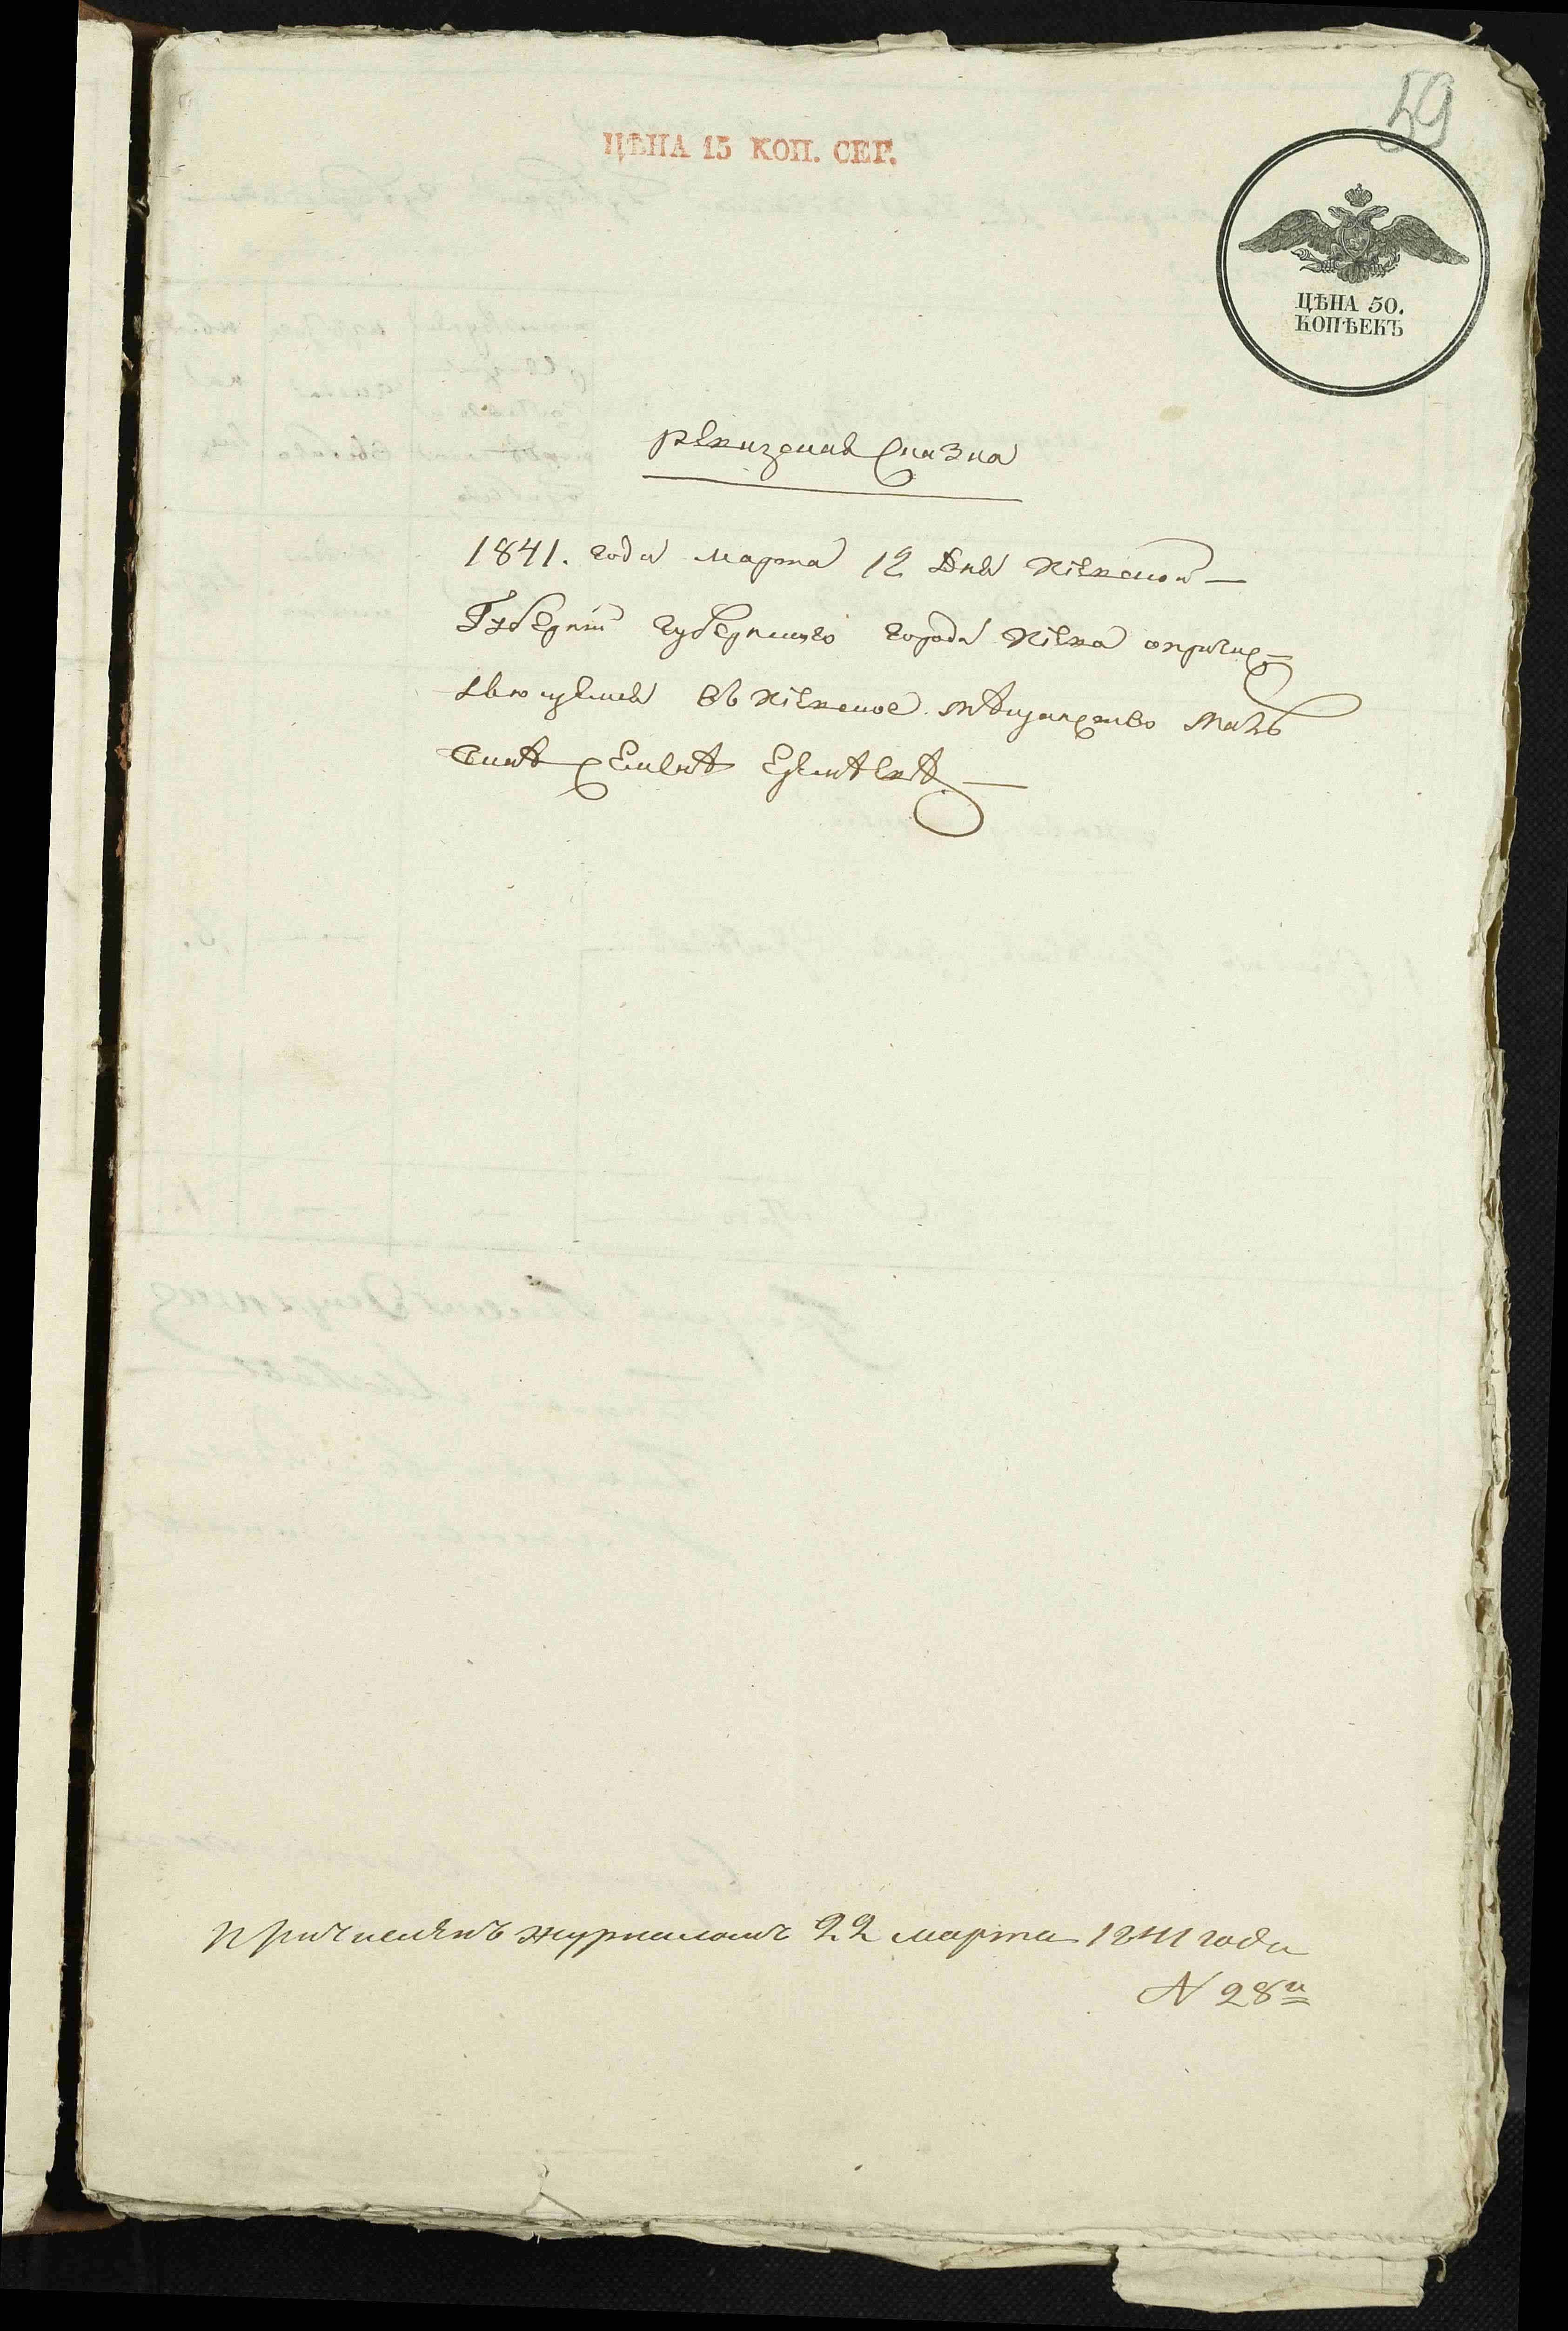 59
ЦѢНА 15 КОП. СЕР.
ЦѢНА 50.
КОПѢЕКЪ
Ревизская Сказка
1841. года марта 12 дня Кіевской
Губерніи губернскаго города Кіева о причис-
ляющемся въ Кіевское мѣщанство
Причисленъ журналомъ 22 марта 1841 года
N 28й